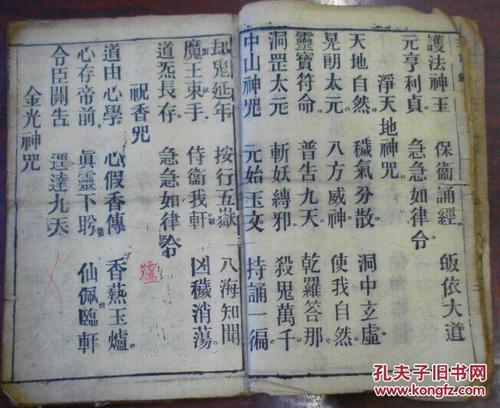 護法神王 保衞誦經 皈依大道
元亨利貞 急急如律令
淨天地神咒
天地自然 穢氣分散 洞中玄虛
晃朗太元 八方威神 使我自然
靈寶符命 普告九天 乾羅答那
洞罡太元 斬妖縛邪 殺鬼萬千
中山神咒 元始玉文 持誦一徧
却鬼延年 按行五嶽 八海知聞
魔王束手 侍衞我軒 凶穢消蕩
道炁長存 急急如律令
祝香咒
道由心學 心假香傳 香爇玉爐
心存帝前 眞靈下盻 仙佩臨軒
令臣關告 逕達九天
金光神咒
孔夫子旧书网